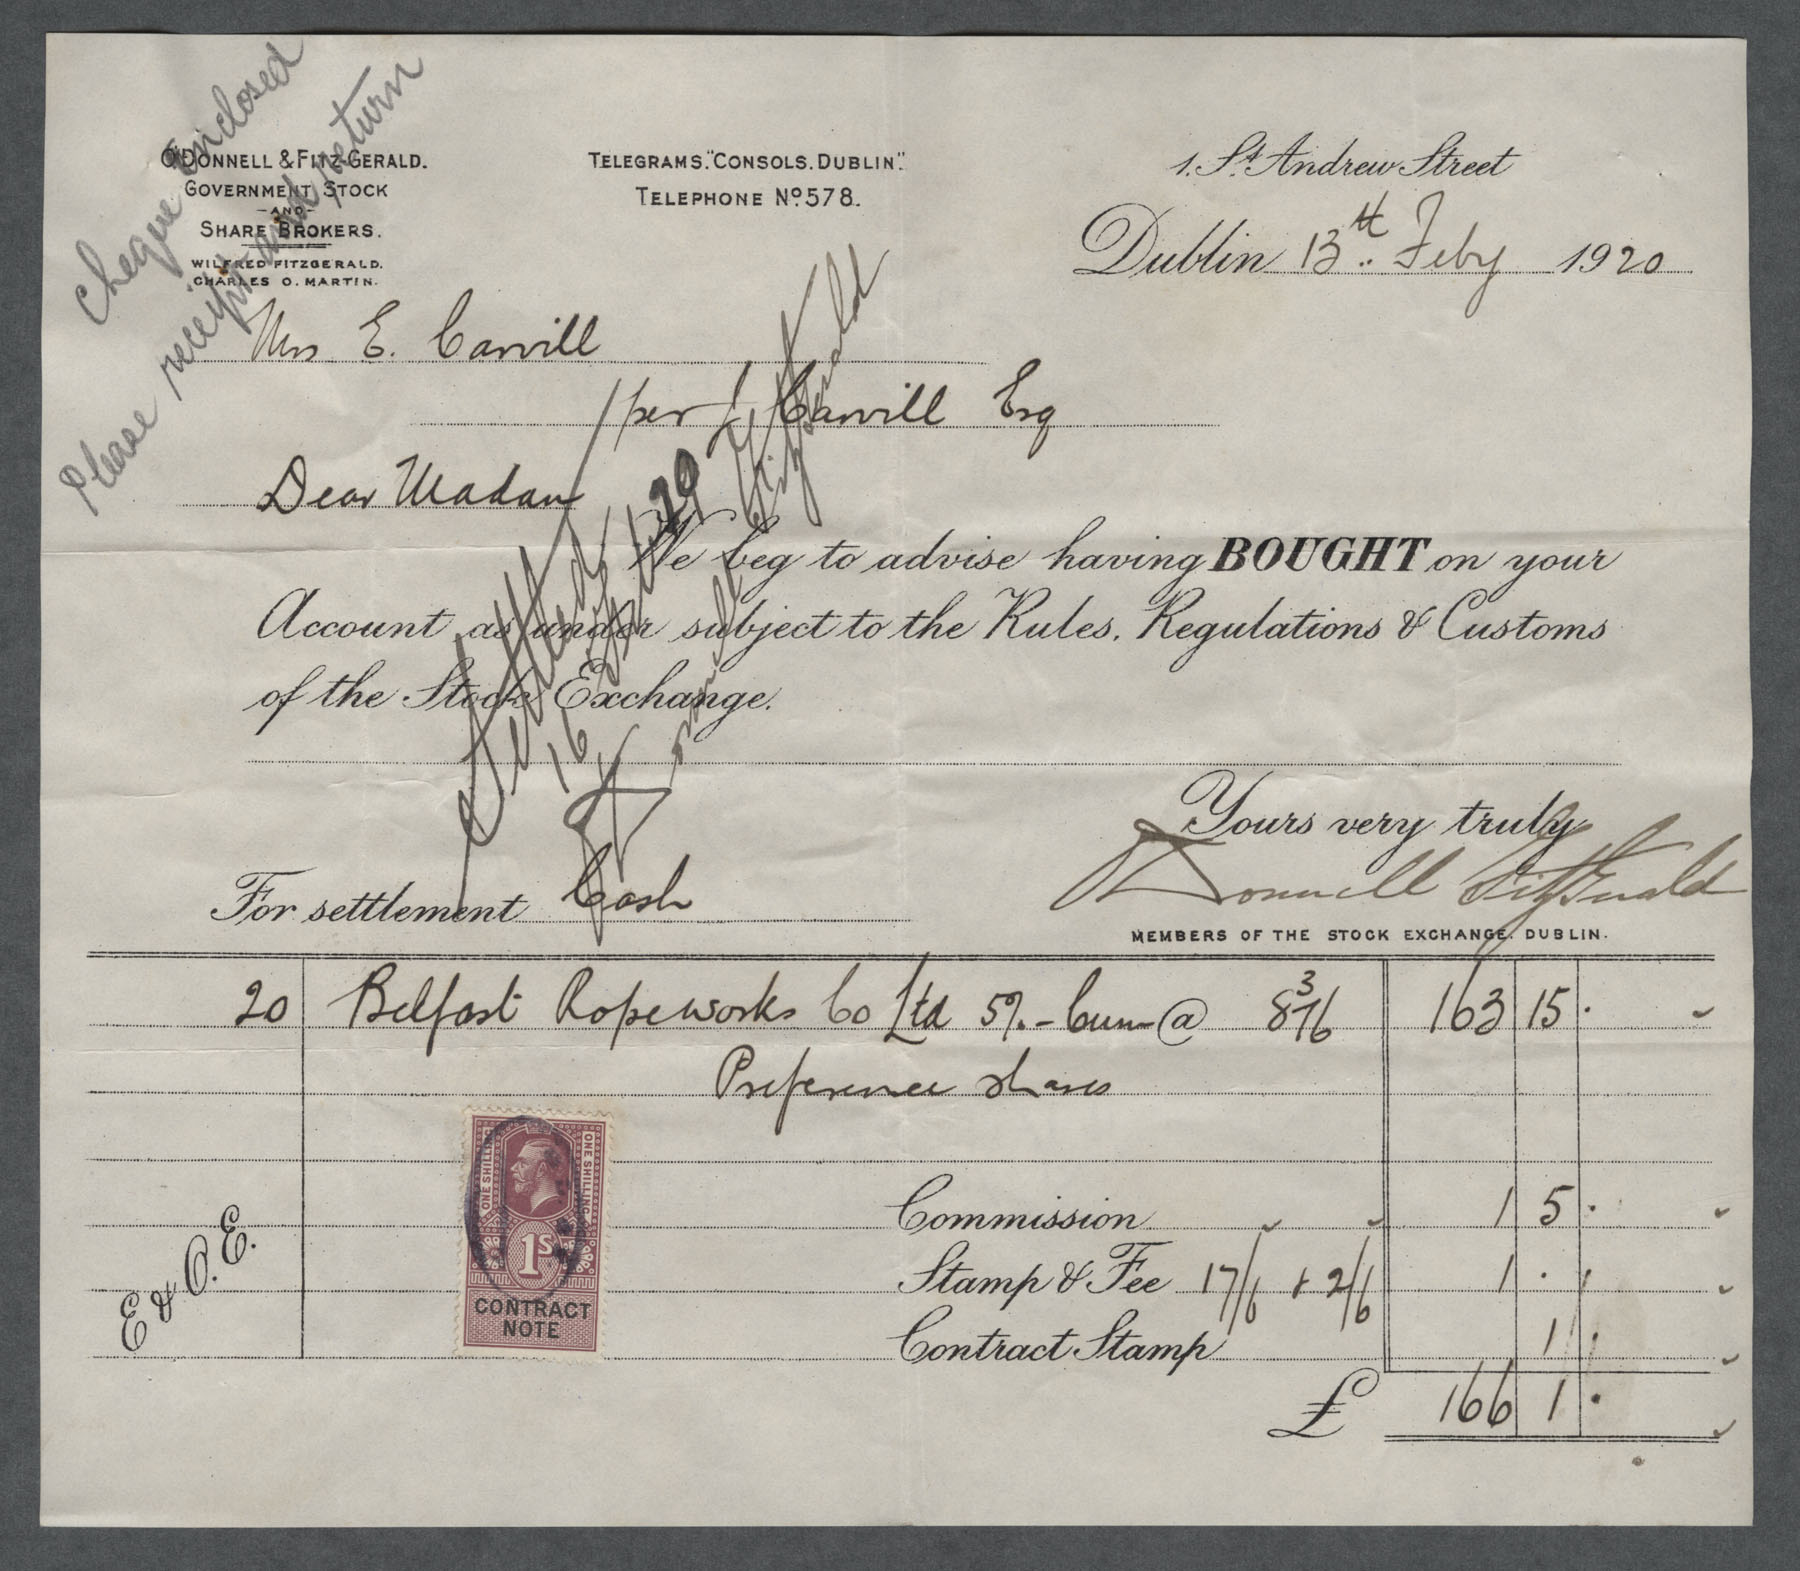 Cheque enclosed
Please receipt and return
O'DONNELL & FITZ-GERALD.
GOVERNMENT STOCK
-AND-
SHARE BROKERS.
WILFRED FITZGERALD.
CHARLES O. MARTIN.
TELEGRAMS. "CONSOLS. DUBLIN".
TELEPHONE No. 578.
1. St. Andrew Street
Dublin 13th Feby 1920
Mrs E. Carvill
per J Carvill Esq
Dear Madam
We beg to advise having BOUGHT on your
Account as under subject to the Rules, Regulations & Customs
of the Stock Exchange.
Settled
16 20
O'Donnell Fitzgerald
Yours very truly
O'Donnell Fitzgerald
For settlement Cash
MEMBERS OF THE STOCK EXCHANGE. DUBLIN.
20 Belfast Ropeworks Co Ltd 5% Cum @ 8 3/16 163 15 .
Preference shares
ONE SHILLING
ONE SHILLING
1S
CONTRACT
NOTE
E & O. E.
Commission 1 5 .
Stamp & Fee 17/6 + 2/6 1 . .
Contract Stamp 1 .
£ 166 1 .